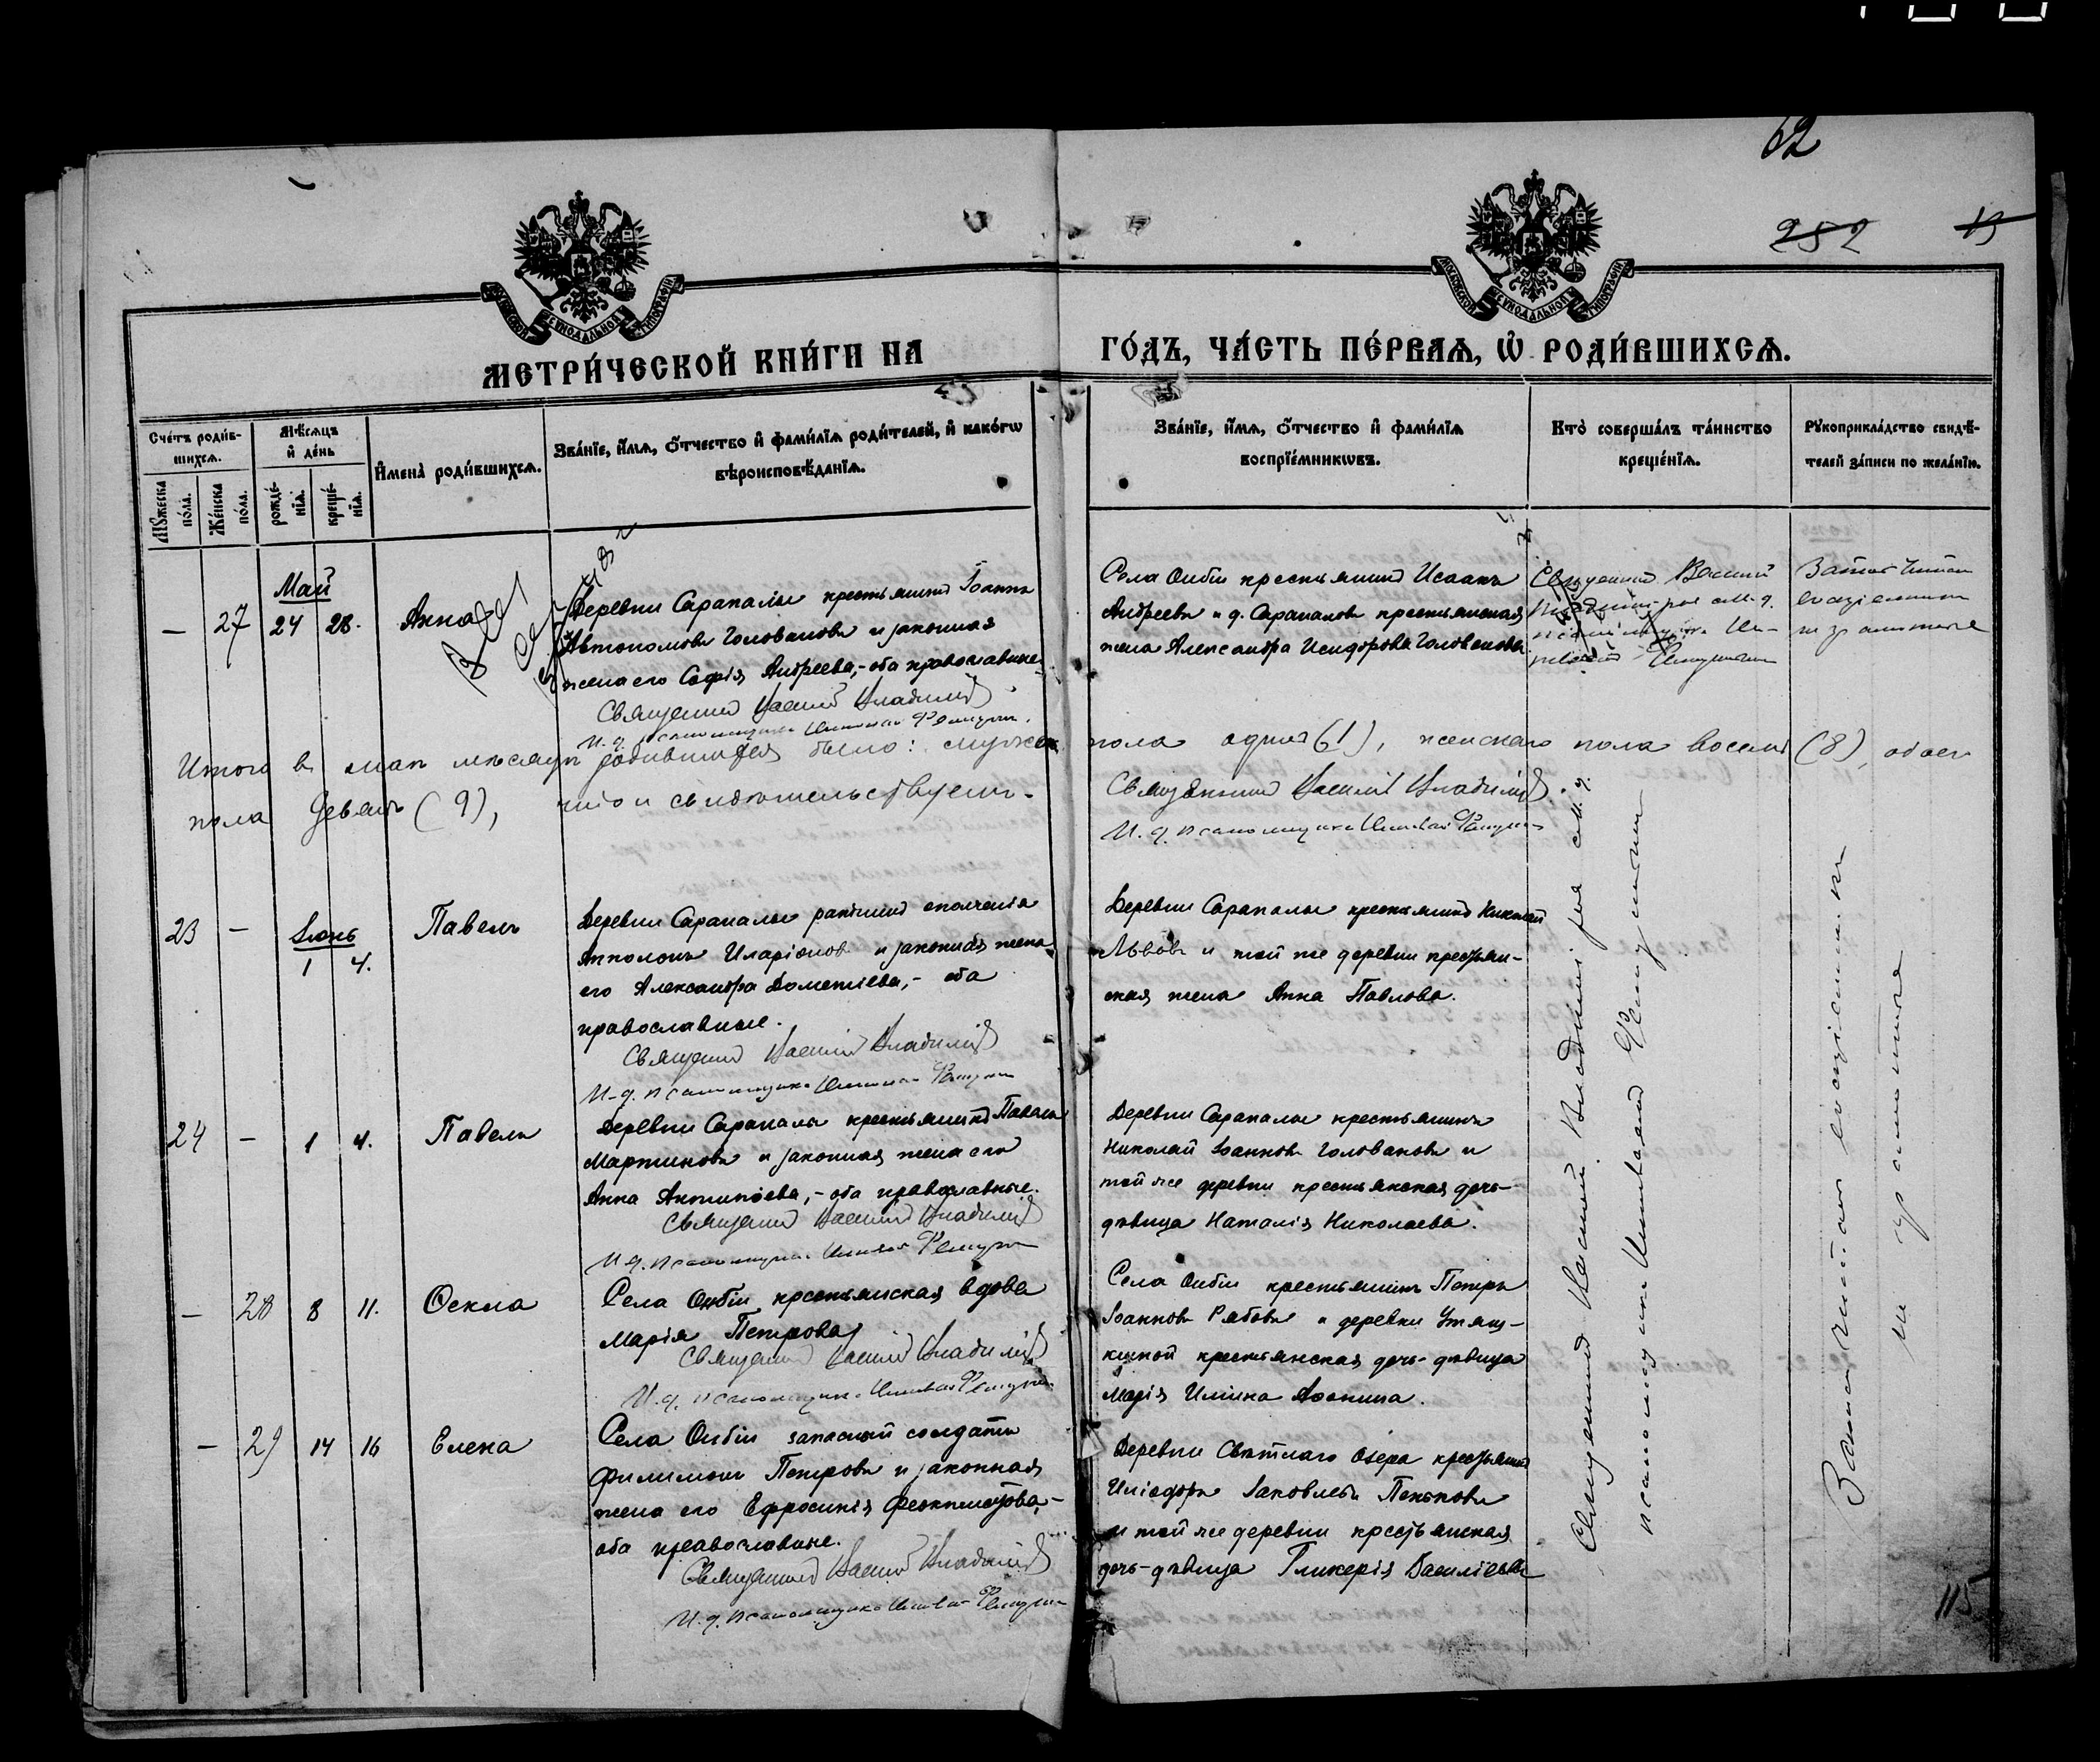 62
252 13
МОСКОВСКОЙ СѴНОДАЛЬНОЙ ТИПОГРАФІИ
МОСКОВСКОЙ СѴНОДАЛЬНОЙ ТИПОГРАФІИ
МЕТРИ́ЧЕСКОЙ КНИ́ГИ НА ГО́ДЪ, ЧА́СТЬ ПЕ́РВАѦ, Ѡ҆ РОДИ́ВШИХСѦ.
Сче́тъ роди́в-
шихсѧ.
Мꙋ́жеска по́ла.
Же́нска по́ла.
Мѣ́сѧцъ
и҆ де́нь
рожде́-
нїѧ.
креще́-
нїѧ.
И҆мена̀ роди́вшихсѧ.
Зва́нїе, и҆́мѧ, ѻ҆́тчество и҆ фами́лїѧ роди́телей, и҆ како́гѡ
вѣроисповѣ́данїѧ.
Зва́нїе, и҆́мѧ, ѻ҆́тчество и҆ фами́лїѧ
воспрїе́мникѡвъ.
Кто̀ соверша́лъ та́инство
креще́нїѧ.
Рꙋкоприкла́дство свидѣ́-
телей за́писи по жела́нїю.
Май
— 27 24 28. Анна
Деревни Сарапалы крестьянинъ Іоаннъ
Автономовъ Головановъ и законная
жена его Софія Андреева,- оба православные
Священникъ Василій Владимір
И. д. псаломщика
Села Онбіи крестьянинъ Исаакъ
Андреевъ и д. Сарапаловъ крестьянская
жена Александра Исидорова Голованова
Священникъ Василій
Итого въ маѣ мѣсяцѣ родившихся было: мужск. пола одинъ (1), женскаго пола восемь (8), обоего
пола девять (9), что и свидѣтельствуемъ.
Священникъ Василій Владимір
И. д. псаломщика
Іюнь
23 — 1 4. Павелъ
Деревни Сарапалы ратникъ ополченія
Апполонъ Иларіоновъ и законная жена
его Александра Дометіева,- оба
православные.
Священникъ Василій Владимір
И. д. псаломщика
Деревни Сарапалы крестьянинъ Николай
Львовъ и той же деревни крестьян-
ская жена Анна Павлова.
24 — 1 4. Павелъ
Деревни Сарапалы крестьянинъ Павелъ
Мартиновъ и законная жена его
Анна Антипіева,- оба православные.
Священникъ Василій Владимір
И. д. псаломщика
Деревни Сарапалы крестьянинъ
Николай Іоанновъ Головановъ и
той же деревни крестьянская дочь-
дѣвица Наталія Николаева.
— 28 8 11. Ѳекла
Села Онбіи крестьянская вдова
Марія Петрова
Священникъ Василій Владимір
И. д. псаломщика
Села Онбіи крестьянинъ Петръ
Іоанновъ Рябовъ и деревни Утяш-
киной крестьянская дочь-дѣвица
Марія Илиина Аѳонина.
— 29 14 16 Елена
Села Онбіи запасный солдатъ
Филимонъ Петровъ и законная
жена его Ефросинія Феоктистова,-
оба православные.
Священникъ Василій Владимір
И. д. псаломщика
Деревни Свѣтлаго Озера крестьянинъ
Иліодоръ Іаковлевъ Пеньковъ
и той же деревни крестьянская
дочь-дѣвица Гликерія Василіева
Священникъ Василій
115